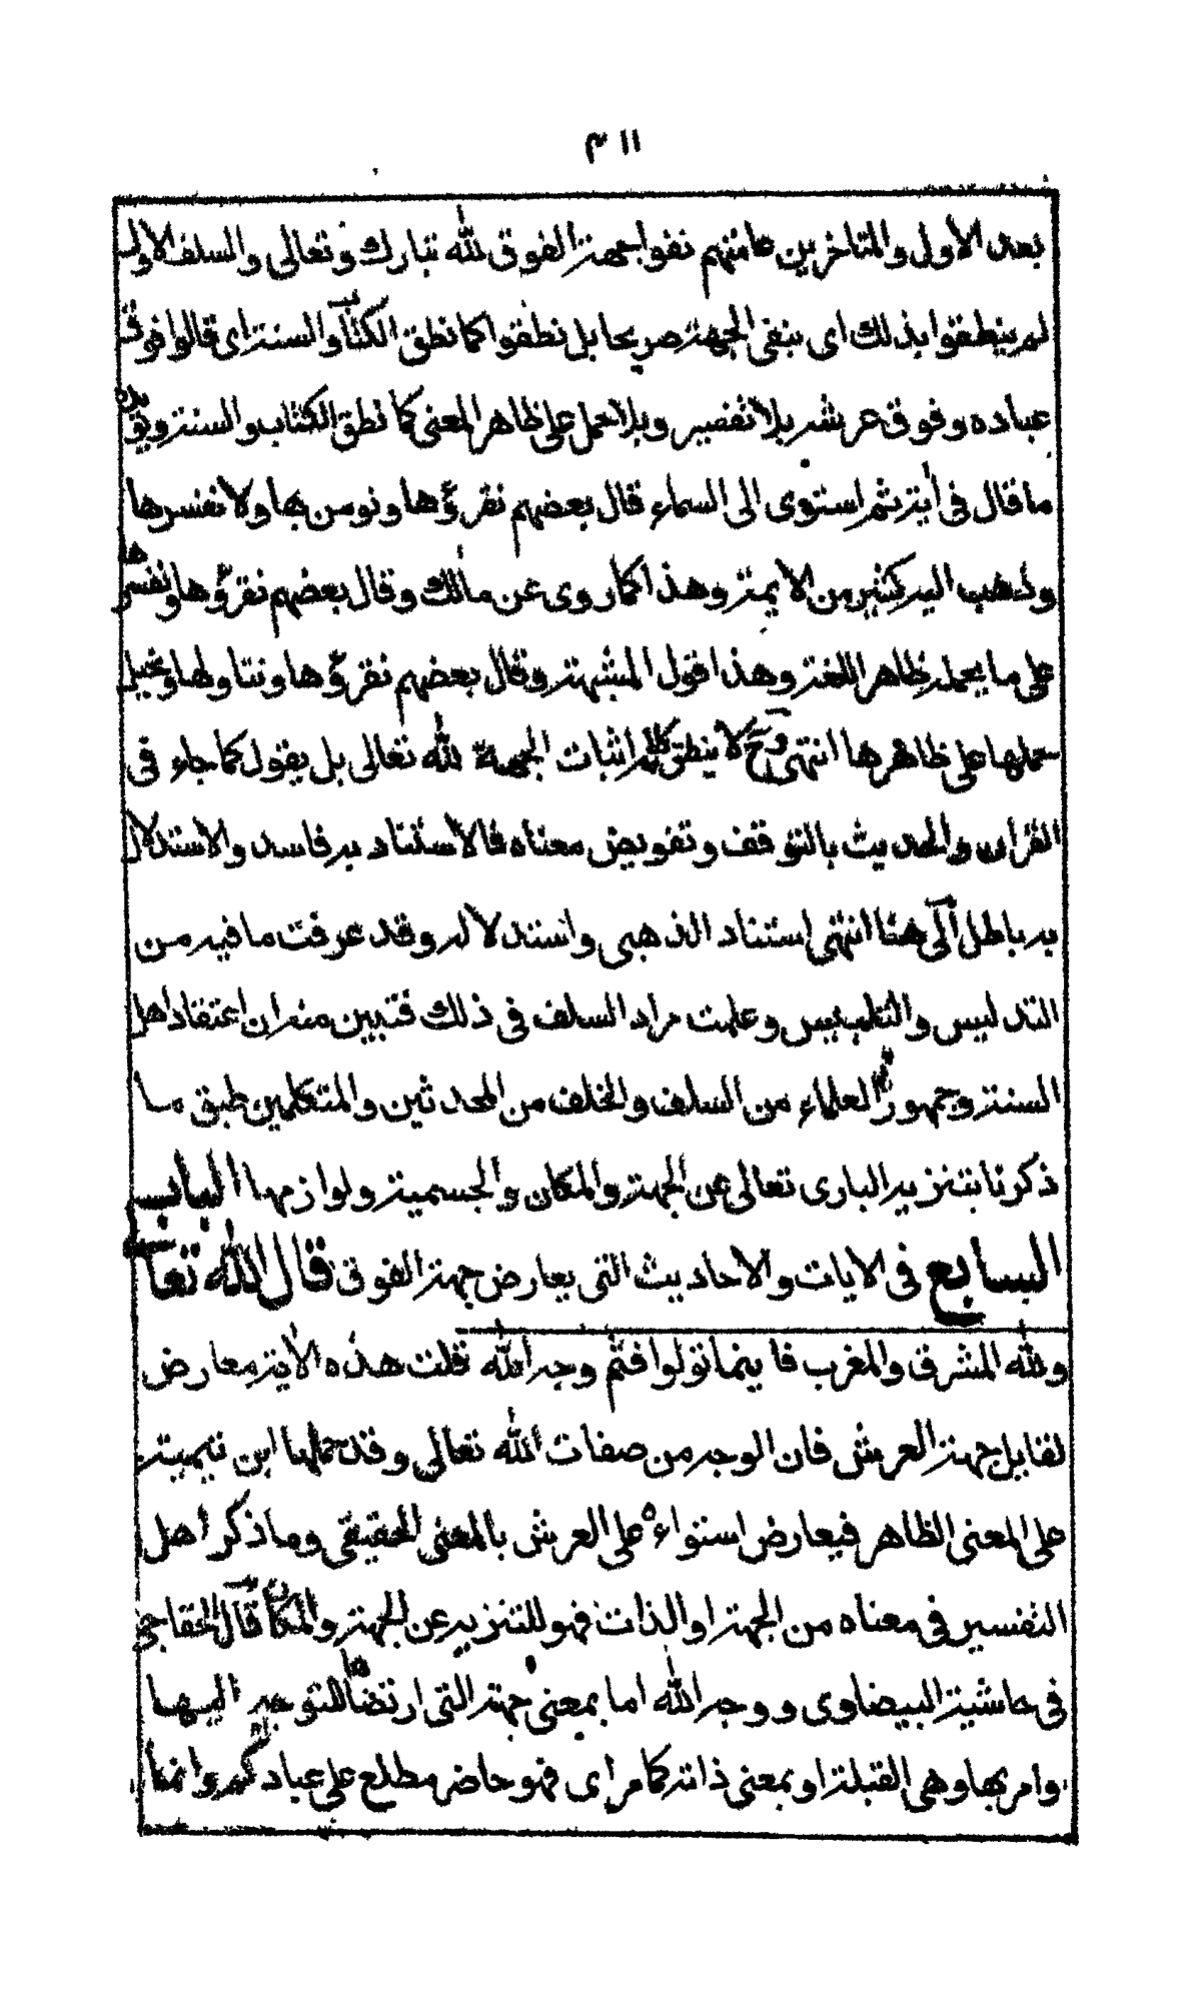 ١١٣
بعد الأولى والمتاخرين عامتهم نفوا جهة الفوق لله تبارك وتعالى والسلف الاول
لم ينطقوا بذلك اى بنفى الجهة صريحا بل نطقوا كما نطق الكتاب والسنة اى قالوا فوق
عباده وفوق عرشه بلا تفسير وبلا حمل على ظاهر المعنى كما نطق الكتاب والسنة ويؤيده
ما قال فى اية ثم استوى الى السماء قال بعضهم نقرؤها ونومن بها ولا نفسرها
وذهب اليه كثير من الايمة وهذا كما روى عن مالك وقال بعضهم نقرؤها ونفسرها
على ما يحمله ظاهر اللغة وهذا قول المشبهة وقال بعضهم نقرؤها ونتاولها ونحيل
حملها على ظاهرها انتهى وح لا ينطق كلام اثبات الجهة لله تعالى بل يقول كما جاء فى
القرآن والحديث بالتوقف وتفويض معناه فالاستناد به فاسد والاستدلال
به باطل الى هنا انتهى استناد الذهبى واستدلاله وقد عرفت ما فيه من
التدليس والتلبيس وعلمت مراد السلف فى ذلك فتبين منه ان اعتقاد اهل
السنة وجمهور العلماء من السلف والخلف من المحدثين والمتكلمين طبق ما
ذكرنا بتنزيه البارى تعالى عن الجهة والمكان والجسمية ولوازمها الباب
السابع فى الايات والاحاديث التى يعارض جهة الفوق قال الله تعالى
ولله المشرق والمغرب فاينما تولوا فثم وجه الله قلت هذه الاية معارض
لقابل جهة العرش فان الوجه من صفات الله تعالى وقد حملها ابن تيمية
على المعنى الظاهر فيعارض استواءه على العرش بالمعنى الحقيقى وما ذكر اهل
التفسير فى معناه من الجهة او الذات فهو للتنزيه عن الجهة والمكان قال الخفاجى
فى حاشية البيضاوى ووجه الله اما بمعنى جهته التى ارتضاها للتوجه اليها
وامر بها وهى القبلة او بمعنى ذاته كما مر اى فهو حاضر مطلع على عبادكم وانما